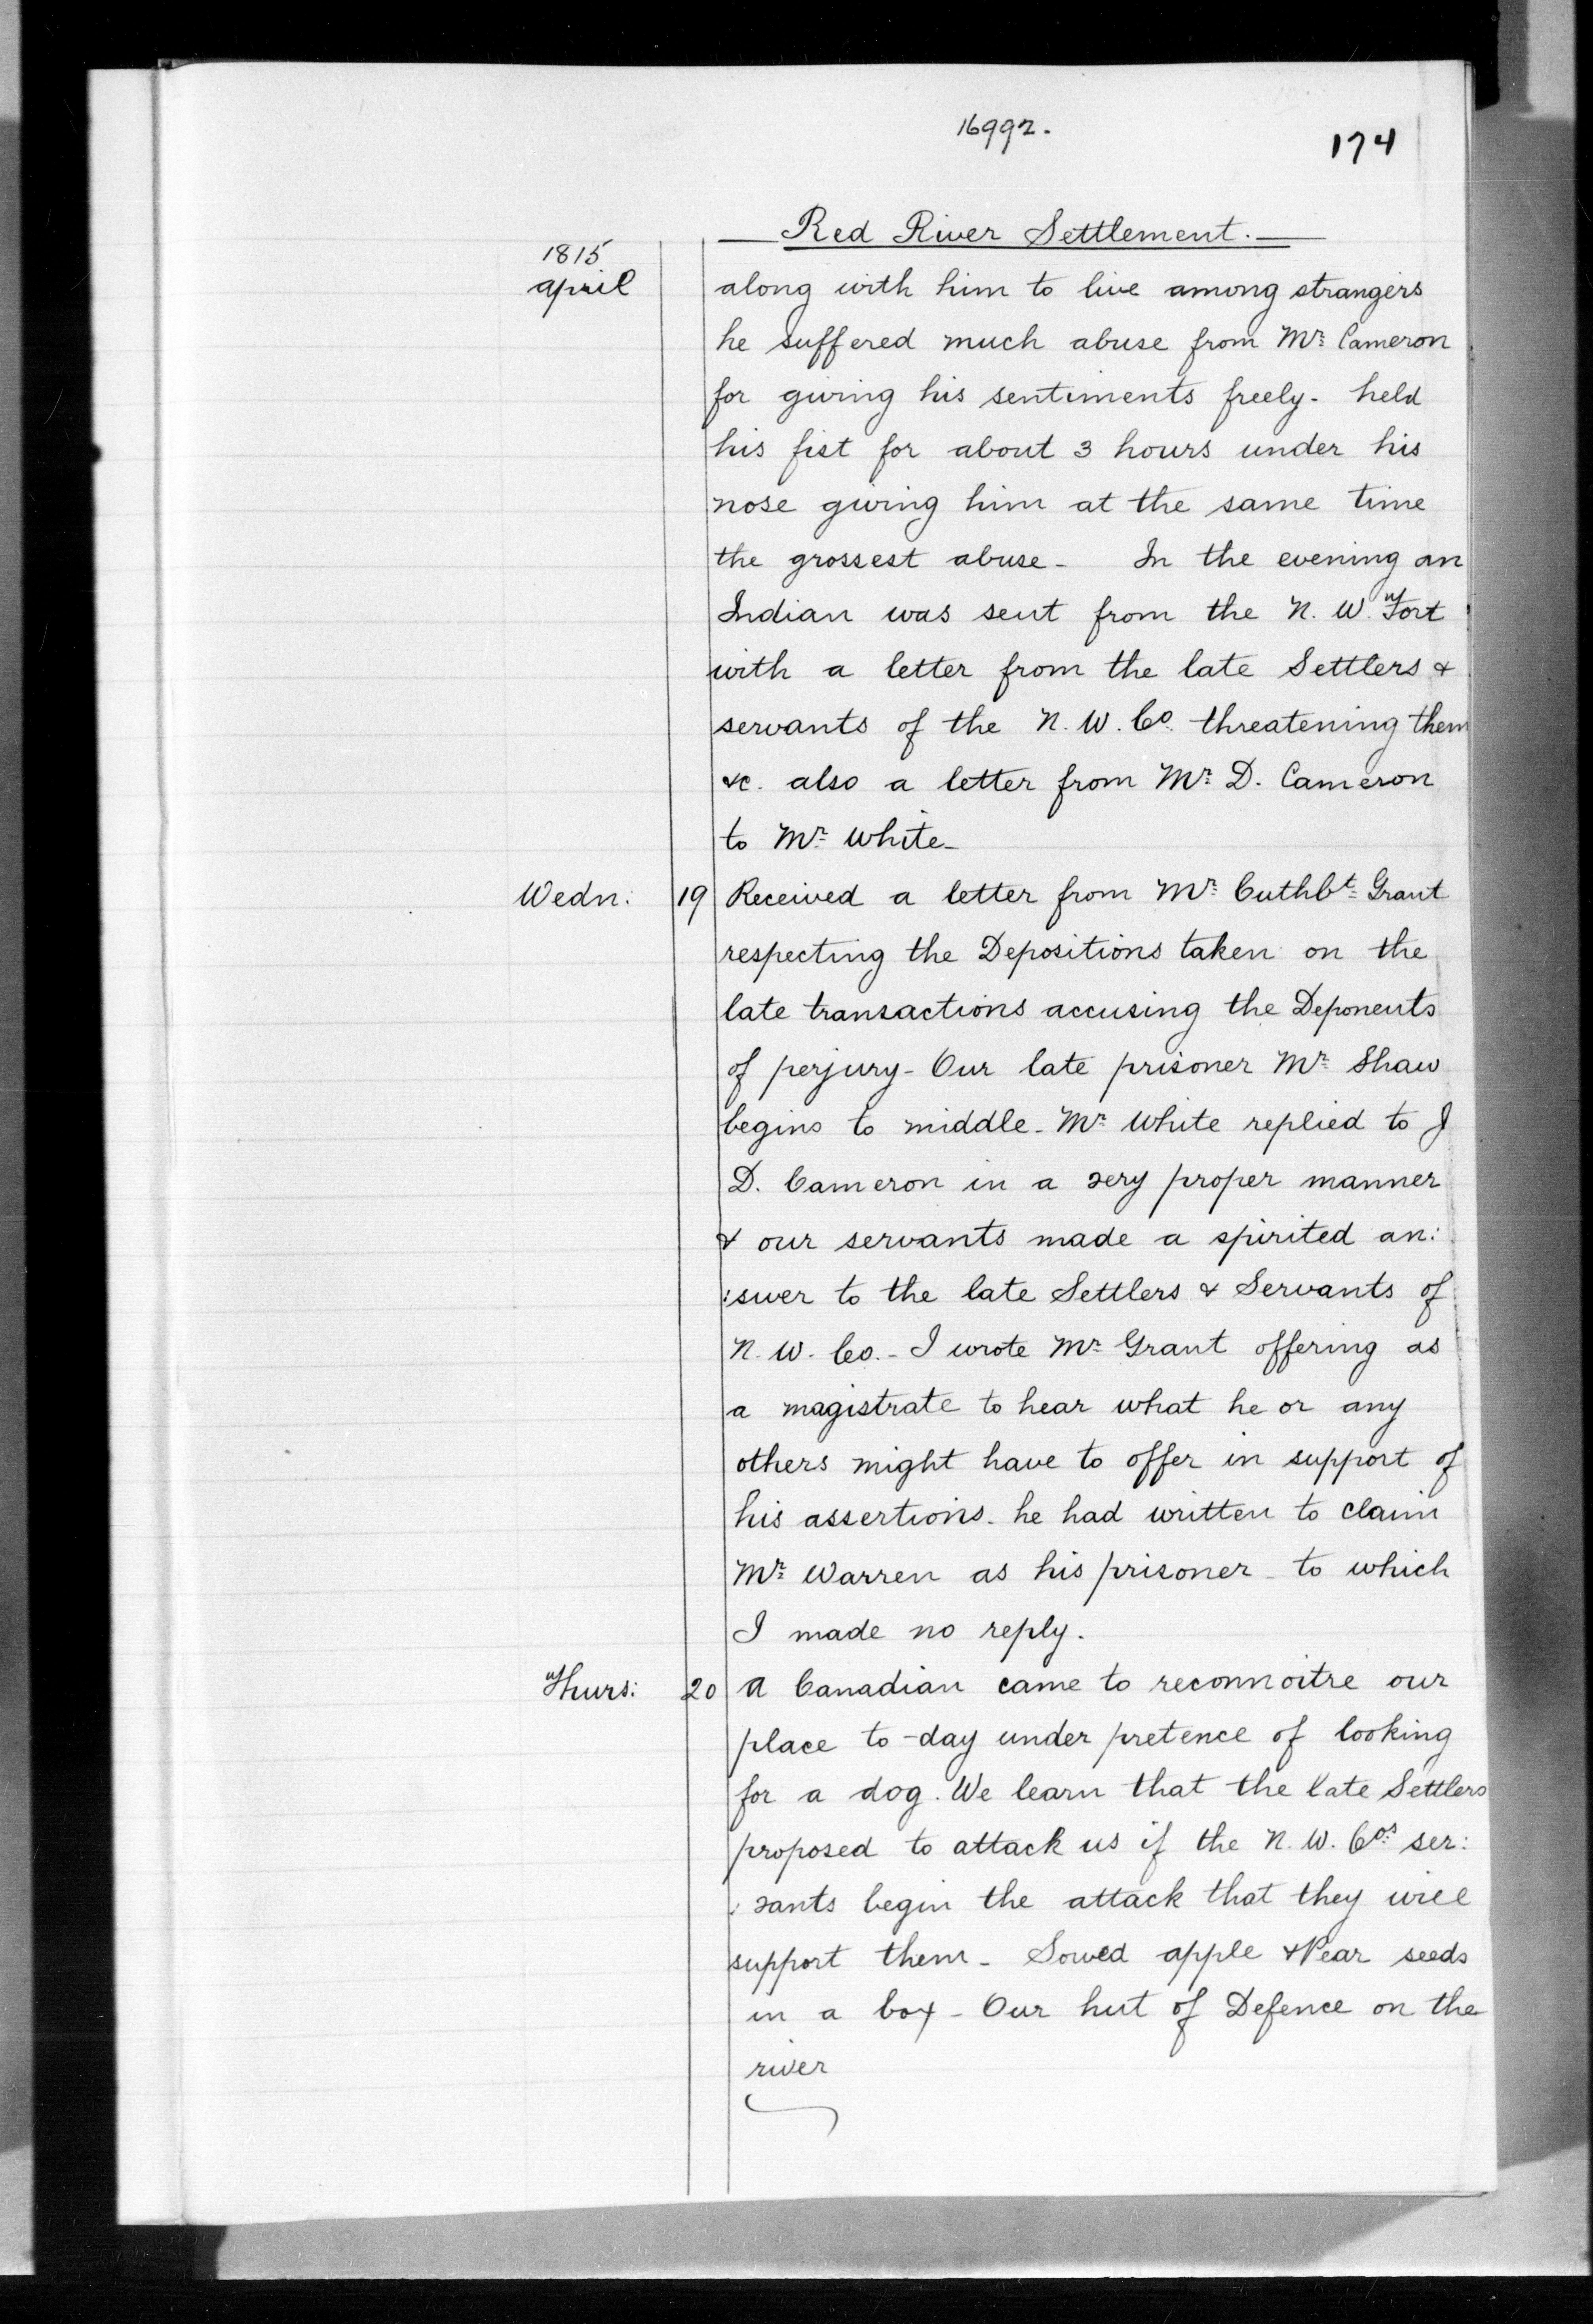 16992.
174
Red River Settlement.
1815
April
along with him to live among strangers
he suffered much abuse from Mr. Cameron
for giving his sentiments freely - held
his fist for about 3 hours under his
nose giving him at the same time
the grossest abuse - In the evening an
Indian was sent from the N. W. Fort
with a letter from the late Settlers &
servants of the N. W. Co. threatening them
&c. also a letter from Mr. D. Cameron
to Mr. White -
Wedn: 19 Received a letter from Mr. Cuthbt. Grant
respecting the Depositions taken on the
late transactions accusing the Deponents
of perjury - Our late prisoner Mr. Shaw
begins to middle - Mr. White replied to J
D. Cameron in a very proper manner
& our servants made a spirited an:
:swer to the late Settlers & Servants of
N. W. Co. - I wrote Mr. Grant offering as
a magistrate to hear what he or any
others might have to offer in support of
his assertions - he had written to claim
Mr. Warren as his prisoner - to which
I made no reply.
Thurs: 20 A Canadian came to reconnoitre our
place to-day under pretence of looking
for a dog. We learn that the late Settlers
proposed to attack us if the N. W. Cos. ser:
:vants begin the attack that they will
support them - Sowed apple & Pear seeds
in a box - Our hut of Defence on the
river